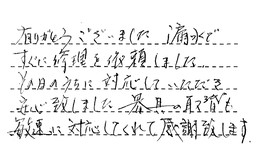 有りがとうございました 漏水で
すぐに修理を依頼しました
その日のうちに対応していただき
安心致しました 器具の取替も
敏速に対応してくれて感謝致します